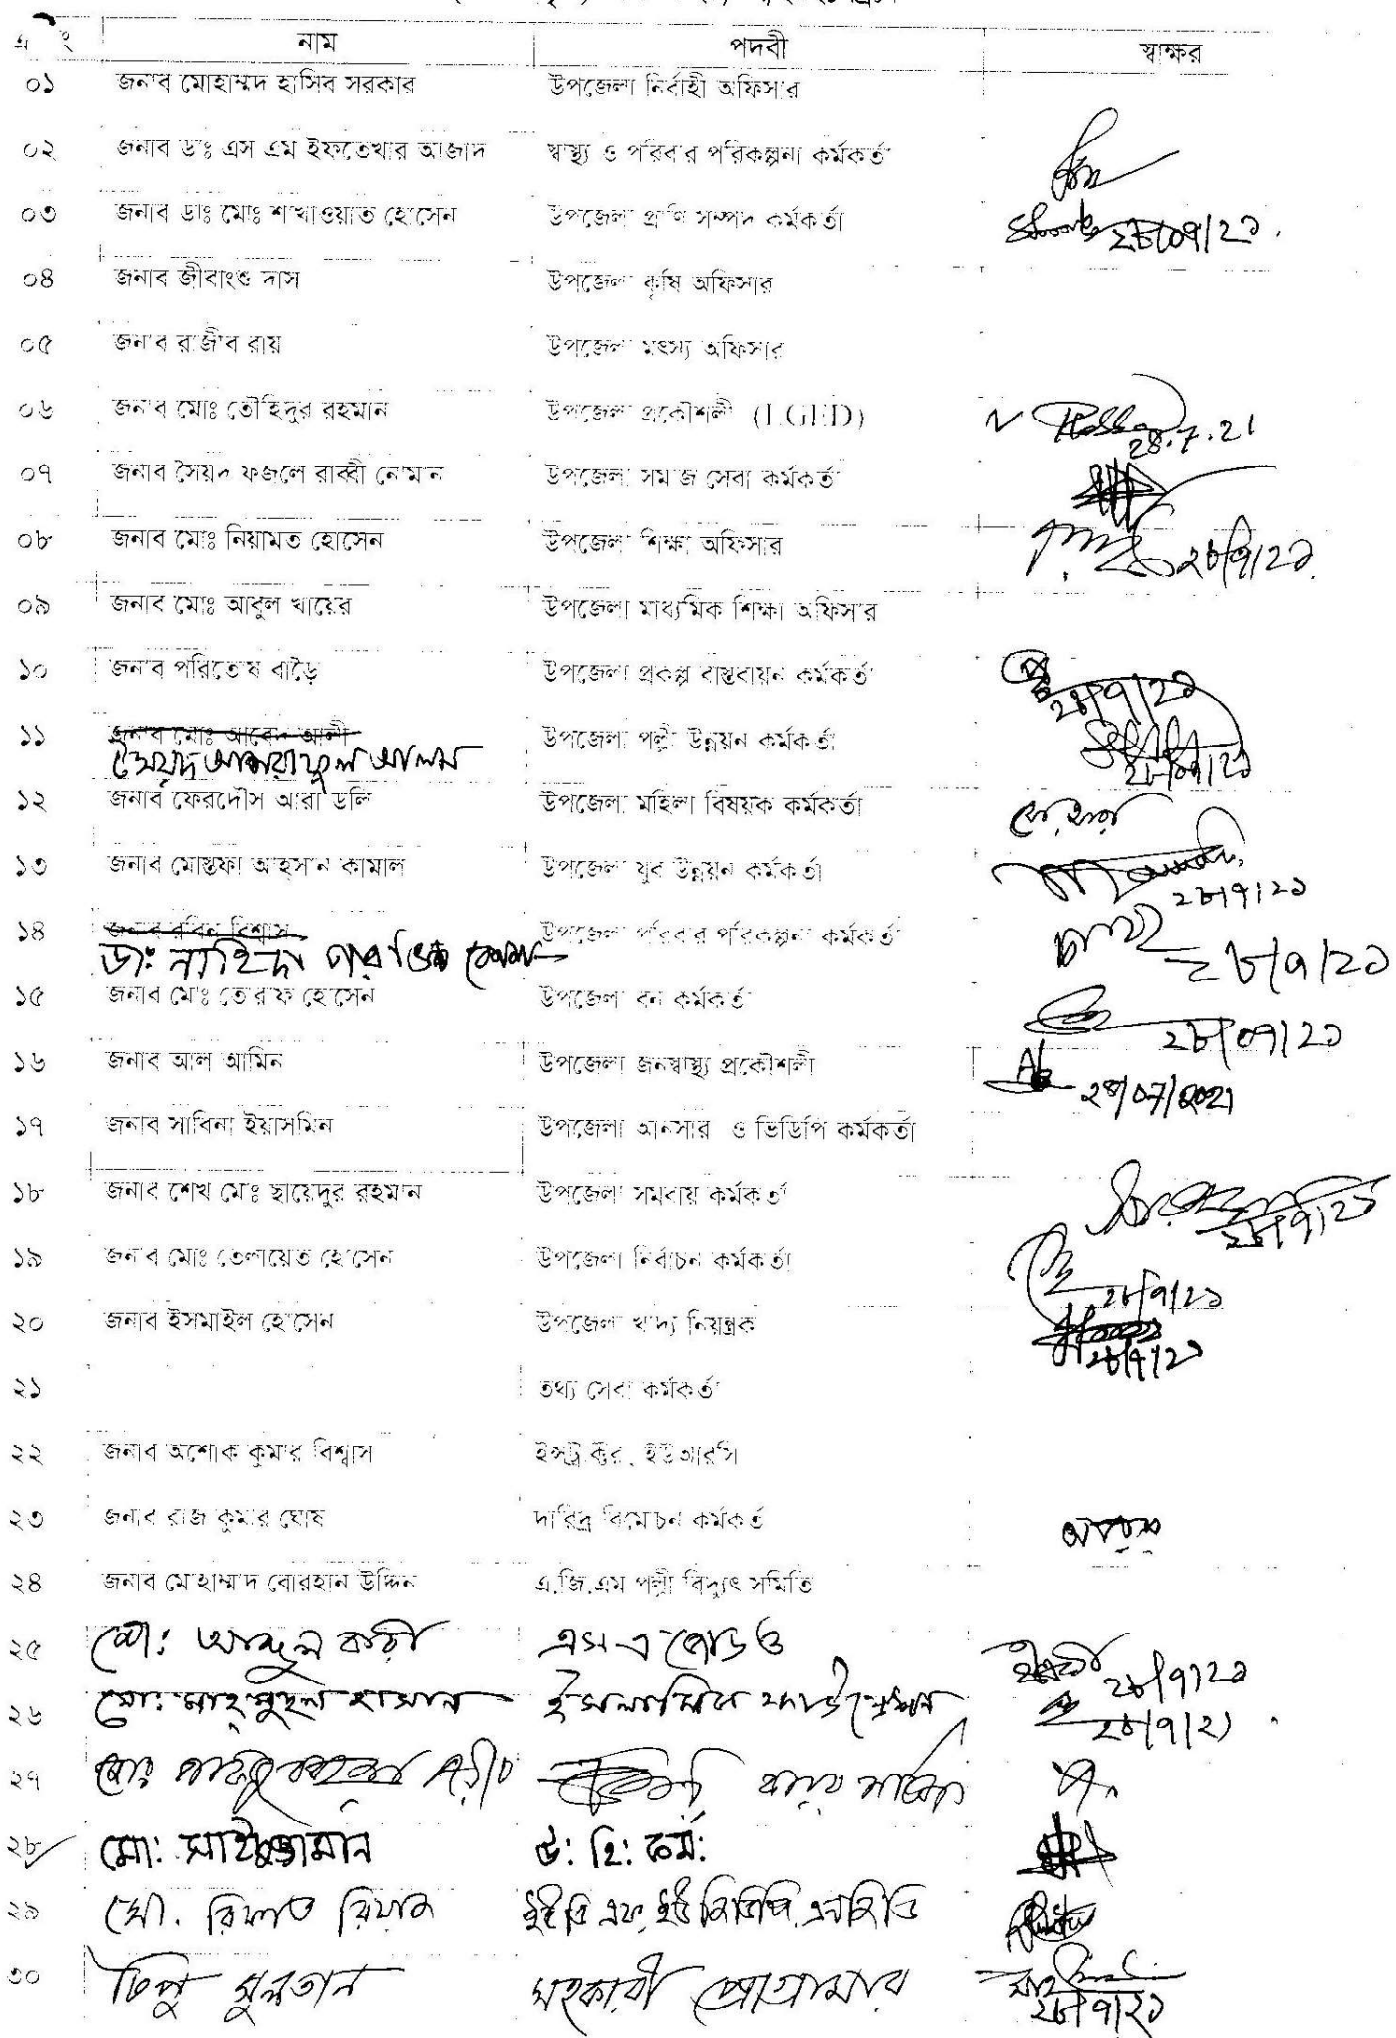 নাম পদবী স্বাক্ষর
০১ জনাব মোহাম্মদ হাসিব সরকার উপজেলা নির্বাহী অফিসার
০২ জনাব ডাঃ এস এম ইফতেখার আজাদ স্বাস্থ্য ও পরিবার পরিকল্পনা কর্মকর্তা
০৩ জনাব ডাঃ মোঃ শাখাওয়াত হোসেন উপজেলা প্রাণি সম্পদ কর্মকর্তা ২৮/০৭/২১
০৪ জনাব জীবাংশু দাস উপজেলা কৃষি অফিসার
০৫ জনাব রাজীব রায় উপজেলা মৎস্য অফিসার
০৬ জনাব মোঃ তৌহিদুর রহমান উপজেলা প্রকৌশলী (LGED) 28.7.21
০৭ জনাব সৈয়দ ফজলে রাব্বী নোমান উপজেলা সমাজ সেবা কর্মকর্তা
০৮ জনাব মোঃ নিয়ামত হোসেন উপজেলা শিক্ষা অফিসার ২৮/৭/২১
০৯ জনাব মোঃ আবুল খায়ের উপজেলা মাধ্যমিক শিক্ষা অফিসার
১০ জনাব পরিতোষ বাড়ৈ উপজেলা প্রকল্প বাস্তবায়ন কর্মকর্তা ২৮/৭/২১
১১ জনাব মোঃ আবেদ আলী উপজেলা পল্লী উন্নয়ন কর্মকর্তা ২৮/০৭/২১
সৈয়দ আশরাফুল আলম
১২ জনাব ফেরদৌস আরা ডলি উপজেলা মহিলা বিষয়ক কর্মকর্তা
১৩ জনাব মোস্তফা আহসান কামাল উপজেলা যুব উন্নয়ন কর্মকর্তা ২৮/৭/২১
১৪ জনাব রবিন বিশ্বাস উপজেলা পরিবার পরিকল্পনা কর্মকর্তা ২৮/৭/২১
ডাঃ নাহিদা
১৫ জনাব মোঃ তোরাফ হোসেন উপজেলা বন কর্মকর্তা ২৮/০৭/২১
১৬ জনাব আল আমিন উপজেলা জনস্বাস্থ্য প্রকৌশলী ২৮/07/2021
১৭ জনাব সাবিনা ইয়াসমিন উপজেলা আনসার ও ভিডিপি কর্মকর্তা
১৮ জনাব শেখ মোঃ ছায়েদুর রহমান উপজেলা সমবায় কর্মকর্তা ২৮/৭/২১
১৯ জনাব মোঃ তেলায়েত হোসেন উপজেলা নির্বাচন কর্মকর্তা ২৮/৭/২১
২০ জনাব ইসমাইল হোসেন উপজেলা খাদ্য নিয়ন্ত্রক ২৮/৭/২১
২১ তথ্য সেবা কর্মকর্তা
২২ জনাব অশোক কুমার বিশ্বাস ইন্সট্রাক্টর, ইউআরসি
২৩ জনাব রাজ কুমার ঘোষ দারিদ্র বিমোচন কর্মকর্তা
২৪ জনাব মোহাম্মদ বোরহান উদ্দিন এ.জি.এম পল্লী বিদ্যুৎ সমিতি
২৫ মো: আব্দুল বারী এস এ ২৮/৭/২১
২৬ মো: মাহমুদুল হাসান ইসলামিক ফাউন্ডেশন ২৮/৭/২১
২৭
২৮ মো: উ: হি: কর্ম:
২৯ মো. রিফাত রিয়াদ
৩০ টিপু সুলতান সহকারী প্রোগ্রামার ২৮/৭/২১